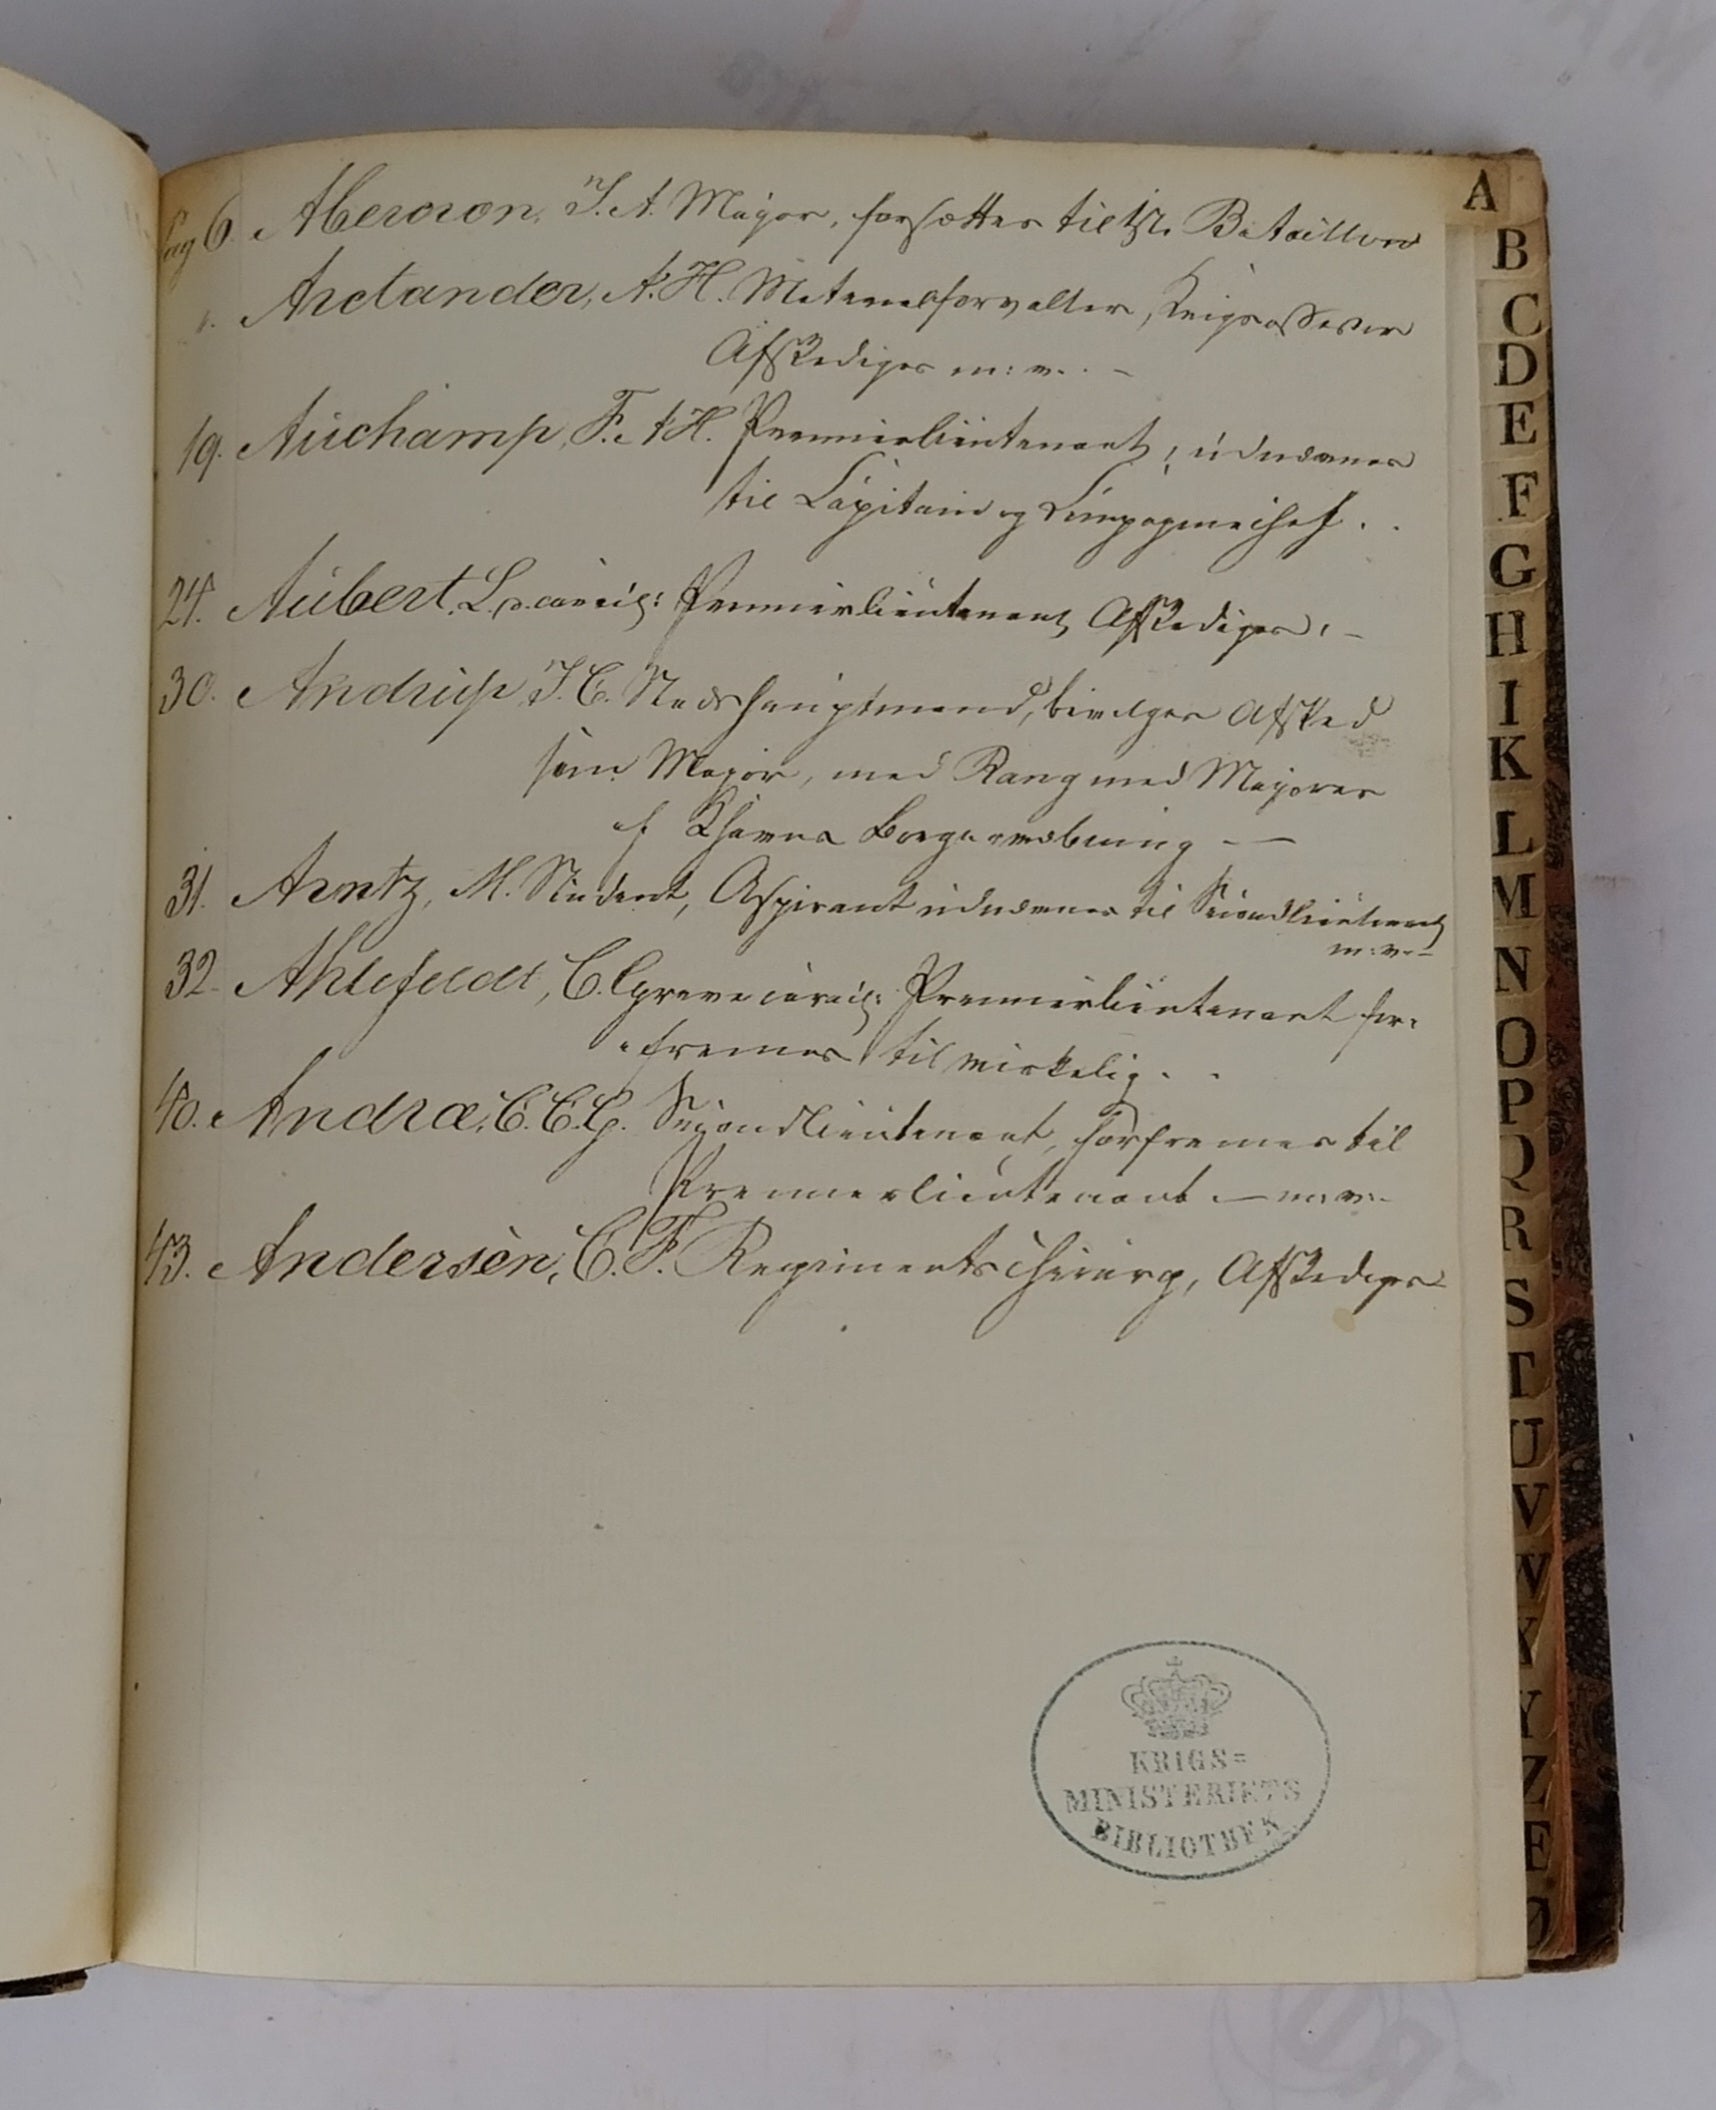 Pag 6. Abercron, J. A. Major, forsættes til 12. Bataillon
". Arctander, A. H. Materialforvalter, Krigsassessor
Afskediges m: v. . –
19. Auchamp, F. A H. Premierlieutenant, udnævnes
til Capitain og Compagniechef. .
24. Aubert, L. caract: Premierlieutenant Afskediges, –
30. Andrup, J. C. Stadshauptmand, bevilges Afsked
som Major, med Rang med Majorer
af Khavns Borgervæbning – –
31. Arntz, M. Student, Aspirant udnævnes til Secondlieutenant
m: v. –
32. Ahlefeldt, C. Greve caract: Premierlieutenant for=
=fremmes til virkelig. .
40. Andræ, C. C. G. Secondlieutenant, forfremmes til
Premierlieutenant – m: v. –
43. Andersen, C. F. Regimentschirurg, Afskediges
KRIGS=
MINISTERIETS
BIBLIOTHEK
A
B
C
D
E
F
G
H
I
K
L
M
N
O
P
Q
R
S
T
U
V
W
X
Y
Z
Æ
Ø